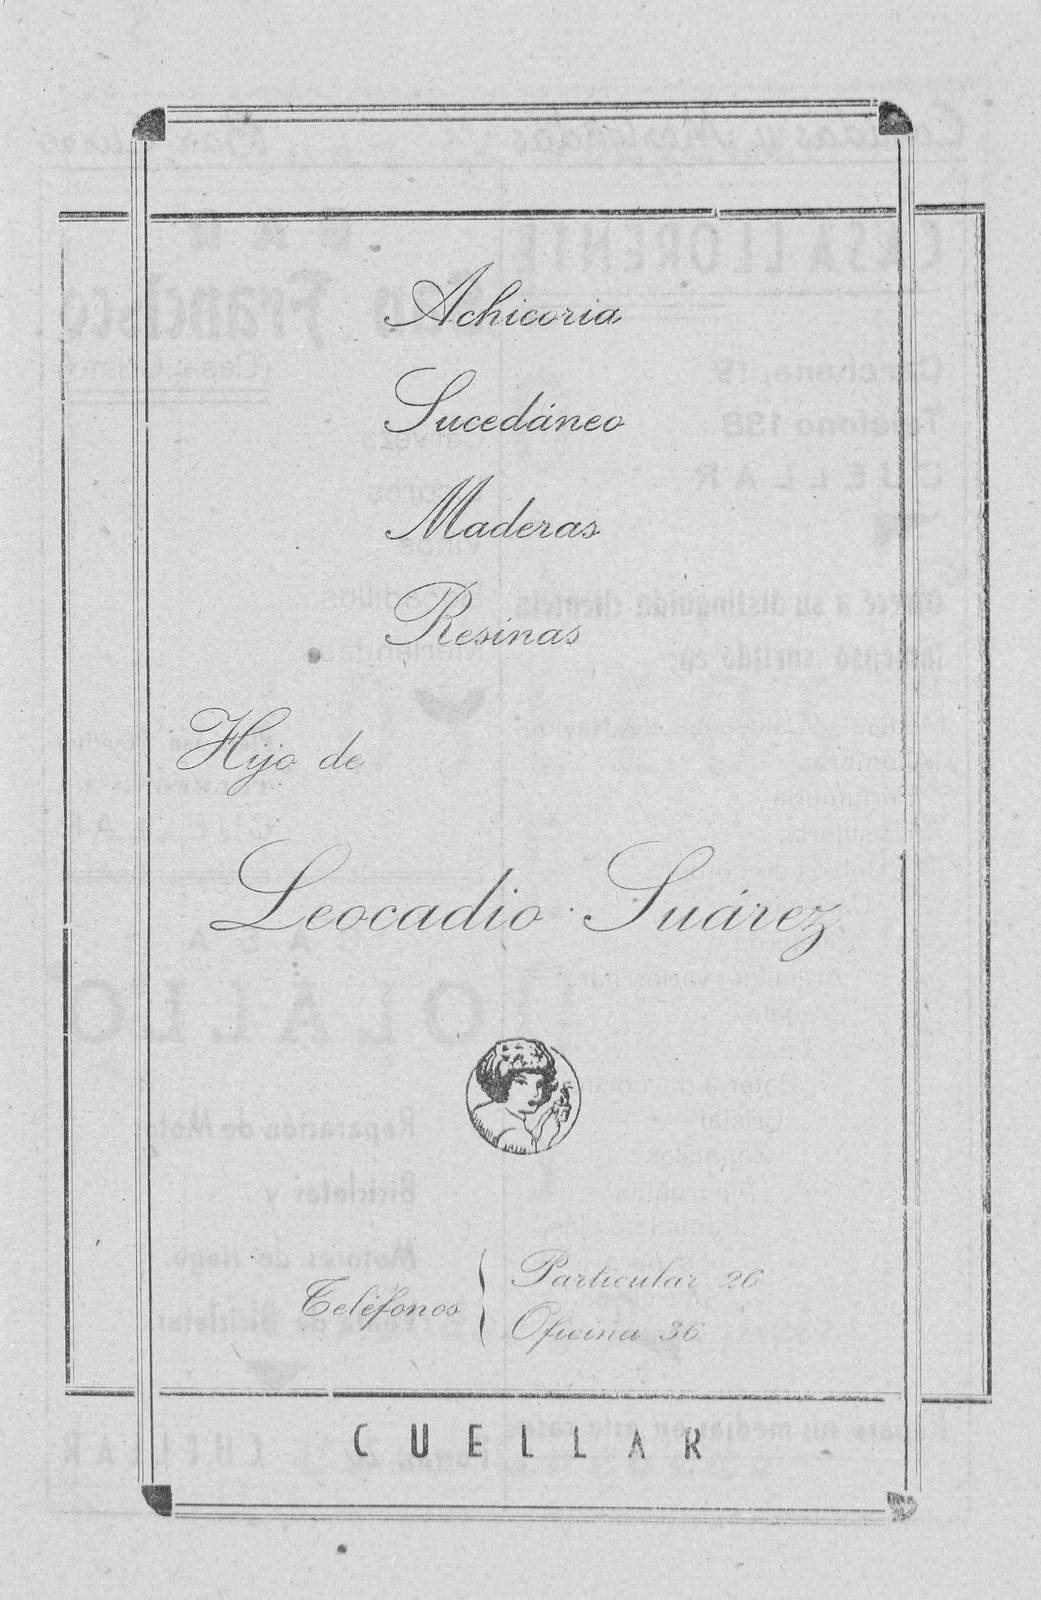 Achicoria
Sucedáneo
Maderas
Resinas
Hijo de
Leocadio Suárez
Teléfonos { Particular 26
Oficina 36
CUELLAR